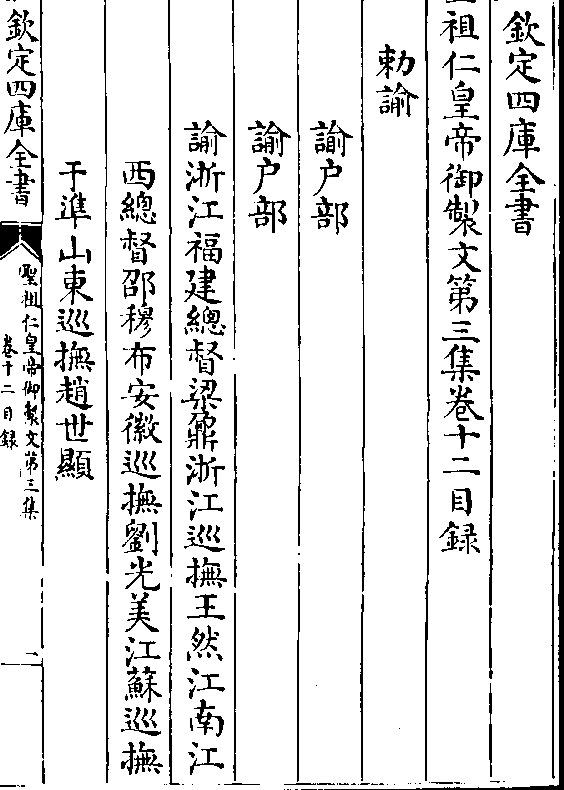 欽定四庫全書
聖祖仁皇帝御製文第三集卷十二目録
勅諭
諭户部
諭户部
諭浙江福建總督梁鼐浙江巡撫王然江南江
西總督邵穆布安徽巡撫劉光美江蘇巡撫
于準山東巡撫趙世顯
欽定四庫全書
聖祖仁皇帝御製文第三集
卷十二目録
一